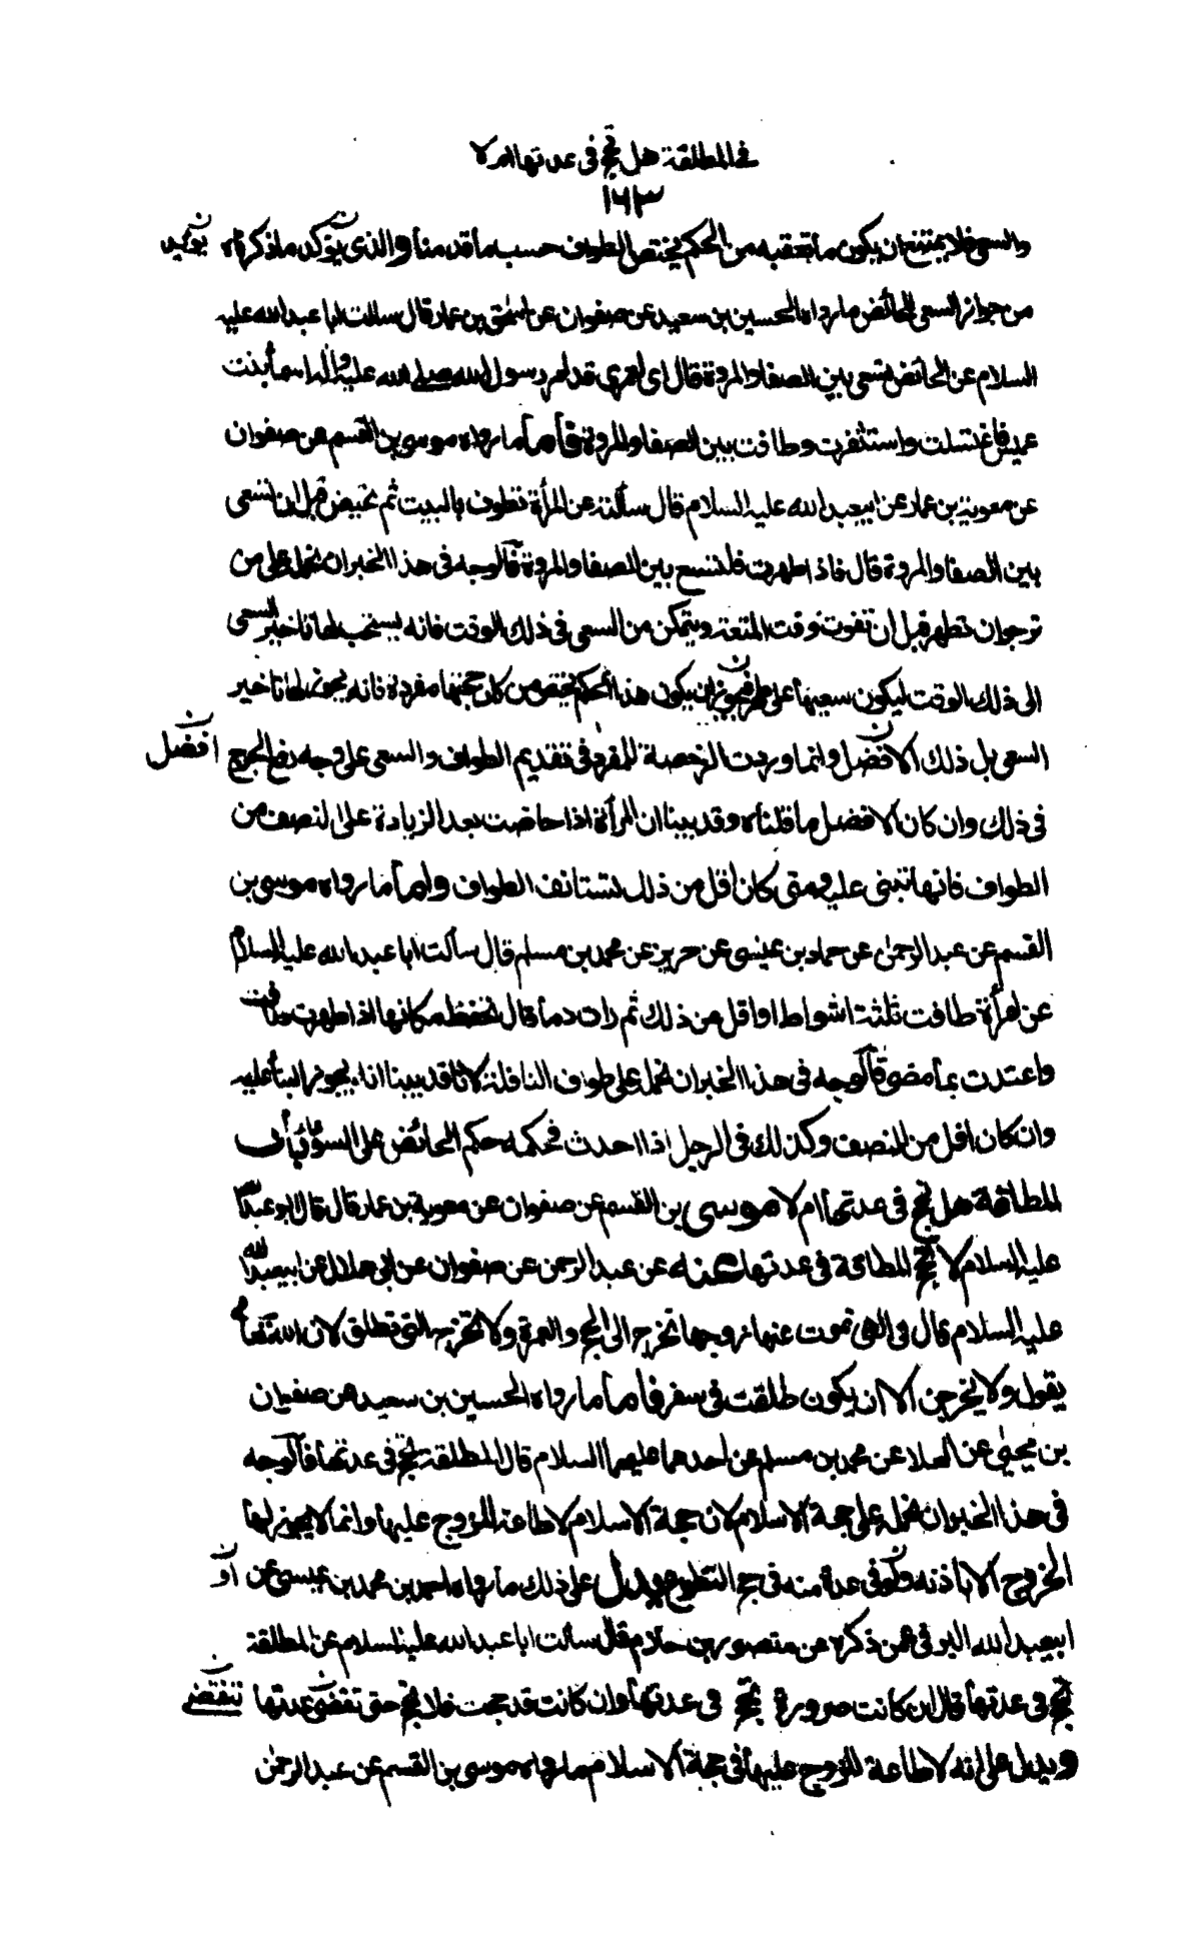 في المطلقة هل تحج في عدتها ام لا
١٦٣
والسعي فلا يمتنع ان يكون ما تعقبه من الحكم يختص الطواف حسب ما قدمناه والذي يؤكد ما ذكرناه يؤيد
من جواز السعي للحائض ما رواه الحسين بن سعيد عن صفوان عن اسحق بن عمار قال سالت ابا عبد الله عليه
السلام عن الحائض تسعى بين الصفا والمروة قال اي لعمري قد امر رسول الله صلى الله عليه واله اسماء بنت
عميس فاغتسلت واستثفرت وطافت بين الصفا والمروة فأما ما رواه موسى بن القسم عن صفوان
عن معوية بن عمار عن ابيعبد الله عليه السلام قال سألته عن المرأة تطوف بالبيت ثم تحيض قبل ان تسعى
بين الصفا والمروة قال فاذا طهرت فلتسع بين الصفا والمروة فالوجه في هذا الخبر ان نحمله على من
ترجو ان تطهر قبل ان تفوت وقت المتعة ويتمكن من السعي في ذلك الوقت فانه يستحب لها تاخير السعي
الى ذلك الوقت ليكون سعيها على طهر فيجوز ان يكون هذا الحكم يختص من كان حجتها مفردة فانه يجوز لها تاخير
السعي بل ذلك الافضل وانما وردت الرخصة للمفرد في تقديم الطواف والسعي على وجه رفع الحرج افضل
في ذلك وان كان الافضل ما قلناه وقد بينا ان المرأة اذا حاضت بعد الزيادة على النصف من
الطواف فانها تبني عليه ومتى كان اقل من ذلك تستانف الطواف واما ما رواه موسى بن
القسم عن عبد الرحمن عن حماد بن عيسى عن حريز عن محمد بن مسلم قال سألت ابا عبد الله عليه السلام
عن امرأة طافت ثلثة اشواط او اقل من ذلك ثم رات دما قال تحفظ مكانها اذا طهرت طافت
واعتدت بما مضى فالوجه في هذا الخبر ان نحمل على طواف النافلة لانا قد بينا انه يجوز البناء عليه
وان كان اقل من النصف وكذلك في الرجل اذا احدث فحكمه حكم الحائض على السواء باب
المطلقة هل تحج في عدتها ام لا موسى بن القسم عن صفوان عن معوية بن عمار قال قال ابو عبد الله
عليه السلام لا تحج المطلقة في عدتها عنه عن عبد الرحمن عن صفوان عن ابي هلال عن ابيعبد الله
عليه السلام قال في التي تموت عنها زوجها تخرج الى الحج والعمرة ولا تخرج التي تطلق لان الله تعالى
يقول ولا يخرجن الا ان يكون طلقت في سفر فأما ما رواه الحسين بن سعيد عن صفوان
بن يحيى عن العلا عن محمد بن مسلم عن احدهما عليهما السلام قال المطلقة تحج في عدتها فالوجه
في هذا الخبر ان نحمله على حجة الاسلام لان حجة الاسلام لا طاعة للزوج عليها وانما لا يجوز لها
الخروج الا باذنه ولو في عدة منه في حج التطوع يدل على ذلك ما رواه احمد بن محمد بن عيسى عن او
ابيعبد الله البرقي عمن ذكره عن منصور بن حازم قال سالت ابا عبد الله عليه السلام عن المطلقة
تحج في عدتها قال ان كانت صرورة تحج في عدتها وان كانت قد حجت فلا تحج حتى تقضى عدتها تنقضي
ويدل على انه لا طاعة للزوج عليها في حجة الاسلام ما رواه موسى بن القسم عن عبد الرحمن